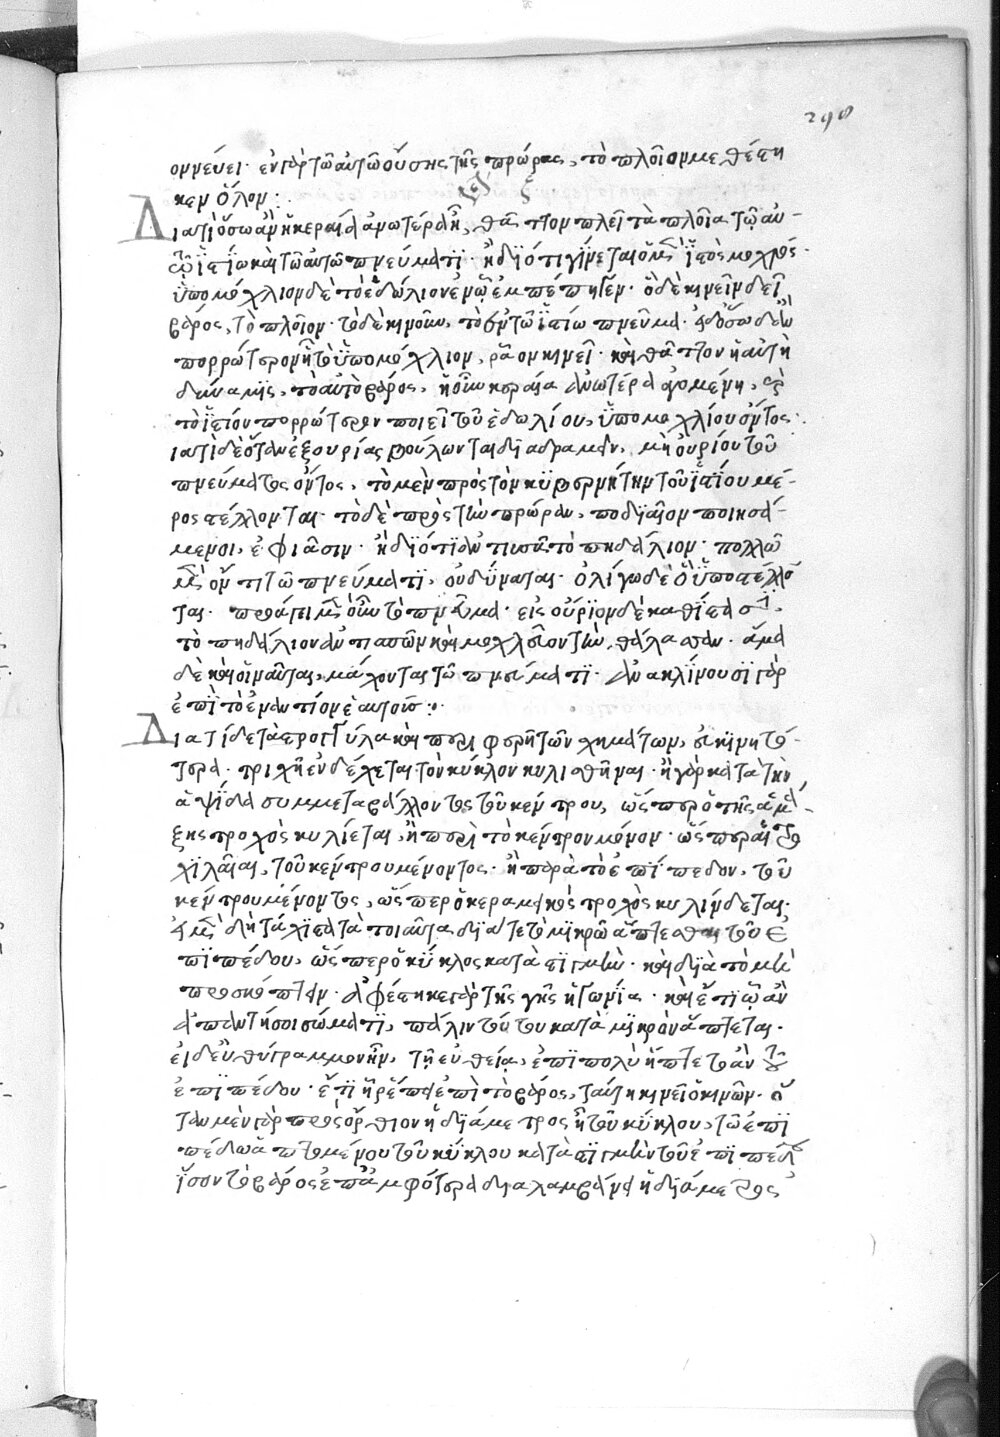 298
ομνεύει· ἐν γὰρ τῶ αὐτῶ οὔσης τῆς πρώρας, τὸ πλοῖον μεθέστη
κεν ὅλον:
Διατί ὅσω ἂν ἡ κεραία ἀνωτέρα ῆ, θᾶττον πλεῖ τὰ πλοῖα τῶ αὐ-
τῶ ἱστίω καὶ τῶ αὐτῶ πνεύματι· ἢ διότι γίνεται ὁ μὲν ἱστὸς μοχλός·
ὑπομόχλιον δὲ τὸ ἑδώλιον ἐν ῶ ἐμπέπηγεν· ὃ δὲ κινεῖν δεῖ
βάρος, τὸ πλοῖον· τὸ δὲ κινοῦν, τὸ ἐν τῶ ἱστίω πνεῦμα· εἰ δ' ὅσω ἂν
πορρώτερον ῆ τὸ ὑπομόχλιον, ρᾶον κινεῖ· καὶ θᾶττον ἡ αὐτὴ
δύναμις, τὸ αὐτὸ βάρος, ἡ οὖν κεραία ἀνωτέρα ἀγομένη, καὶ
τὸ ἱστίον πορρώτερον ποιεῖ τοῦ ἑδωλίου, ὑπομοχλίου ὄντος·
ιατί δὲ ὅταν ἐξ οὐρίας βούλωνται διαδραμεῖν, μὴ οὐρίου τοῦ
πνεύματος ὄντος, τὸ μὲν πρὸς τὸν κυβερνήτην τοῦ ἱστίου μέ-
ρος στέλλονται· τὸ δὲ πρὸς τὴν πρώραν, ποδιαῖον ποιησά-
μενοι, ἐφιᾶσιν· ἢ διότι ἀντισπᾶ τὸ πηδάλιον· πολλῶ
μὲν ὄντι τῶ πνεύματι, οὐ δύναται· ὀλίγω δὲ ὃ ὑποστέλλον
ται· προάγει μὲν οὖν τὸ πνεῦμα· εἰς οὔριον δὲ καθίστησι,
τὸ πηδάλιον ἀντισπῶν καὶ μοχλεῦον τὴν θάλατταν· ἅμα
δὲ καὶ οἱ ναῦται, μάχονται τῶ πνεύματι· ἀνακλίνουσι γὰρ
ἐπὶ τὸ ἐναντίον ἑαυτούς:·
Διατί δὲ τὰ στρογγύλα καὶ περιφερῆ τῶν σχημάτων, εὐκινητό-
τερα· τριχῆ ἐνδέχεται τὸν κύκλον κυλισθῆναι· ἢ γὰρ κατὰ τὴν
ἁψῖδα συμμεταβάλλοντος τοῦ κέντρου, ὥσπερ ὁ τῆς ἁμά-
ξης τροχὸς κυλίεται, ἢ περὶ τὸ κέντρον μόνον· ὥσπερ αἱ τρο
χιλαῖαι, τοῦ κέντρου μένοντος· ἢ παρὰ τὸ ἐπίπεδον, τοῦ
κέντρου μένοντος, ὥσπερ ὁ κεραμεικὸς τροχὸς κυλίνδεται·
εἰ μὲν δὴ τάχιστα τὰ τοιαῦτα διά τε τὸ μικρῶ ἅπτεσθαι τοῦ ἐ
πιπέδου, ὥσπερ ὁ κύκλος κατὰ στιγμὴν· καὶ διὰ τὸ μὴ
προσκόπτειν· ἀφέστηκε γὰρ τῆς γῆς ἡ γωνία· καὶ ἔτι ῶ ἂν
ἀπαντήση σώματι, πάλιν τούτου κατὰ μικρὸν ἅπτεται·
εἰ δ' εὐθύγραμμον ῆν, τῆ εὐθεία, ἐπὶ πολὺ ἥπτετο ἂν τοῦ
ἐπιπέδου· ἔτι ῆ ρέπει ἐπὶ τὸ βάρος, ταύτη κινεῖ ὁ κινῶν· ὅ
ταν μὲν γὰρ πρὸς ὄρθιον ἡ διάμετρος ῆ τοῦ κύκλου, τῶ ἐπι
πέδω ἁπτομένου τοῦ κύκλου κατὰ στιγμὴν τοῦ ἐπιπέδου
ἴσον τὸ βάρος ἐπ' ἀμφότερα διαλαμβάνει ἡ διάμετρος